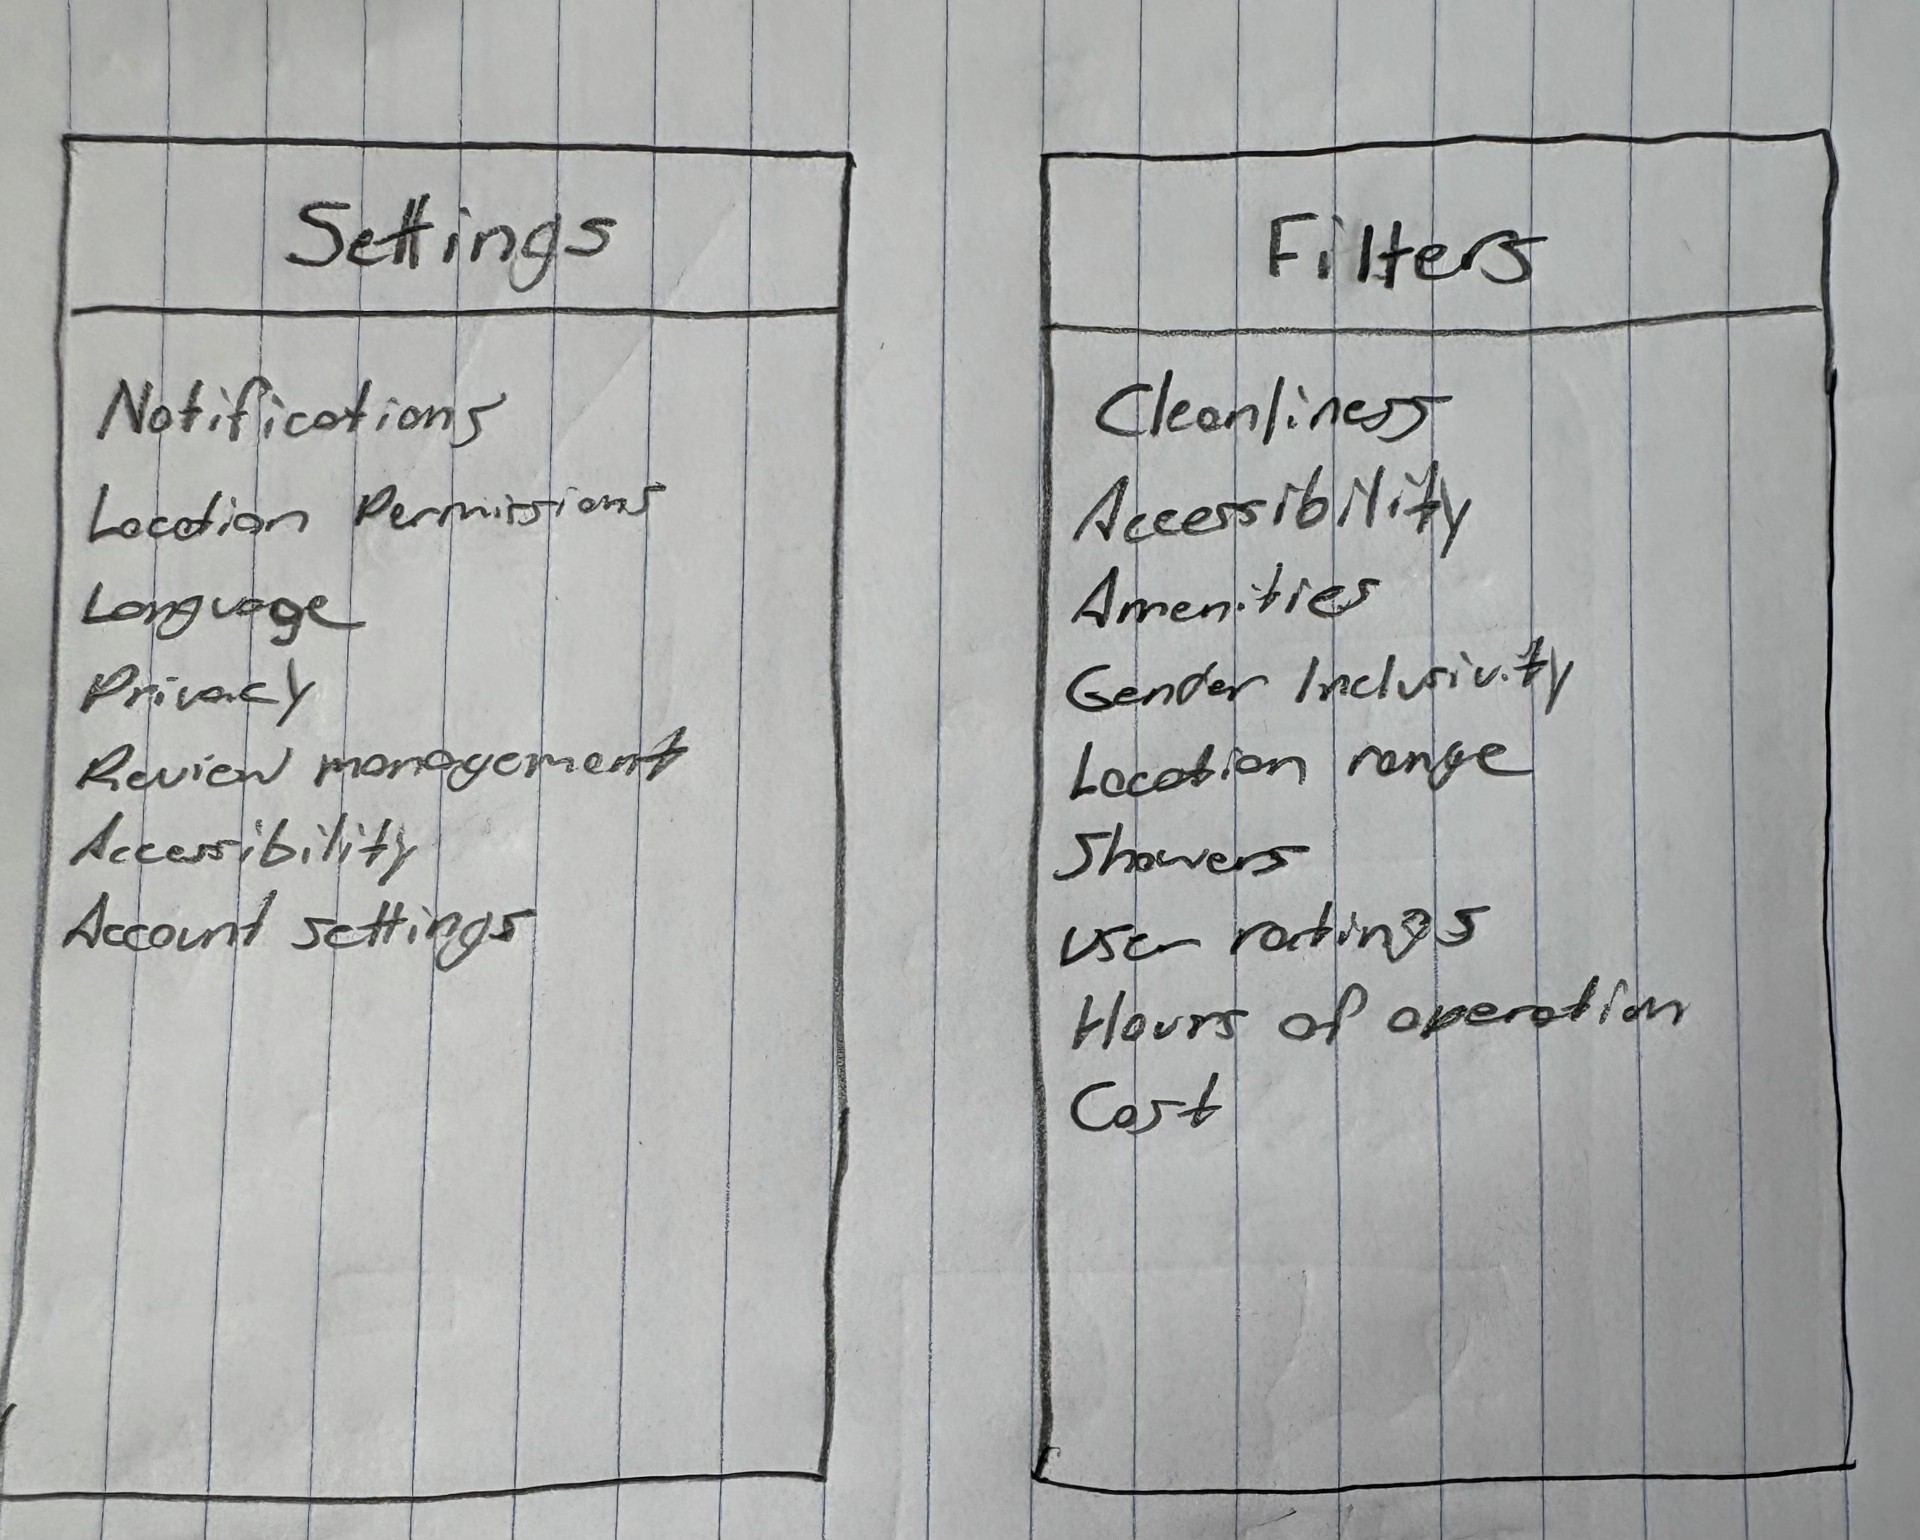 Settings
Notifications
Location Permissions
Language
Privacy
Review management
Accessibility
Account settings
Filters
Cleanliness
Accessibility
Amenities
Gender Inclusivity
Location range
Showers
User ratings
Hours of operation
Cost